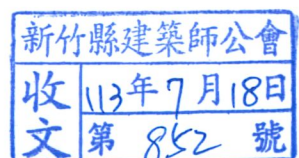 新竹縣建築師公會
收文
113年7月18日
第 852 號